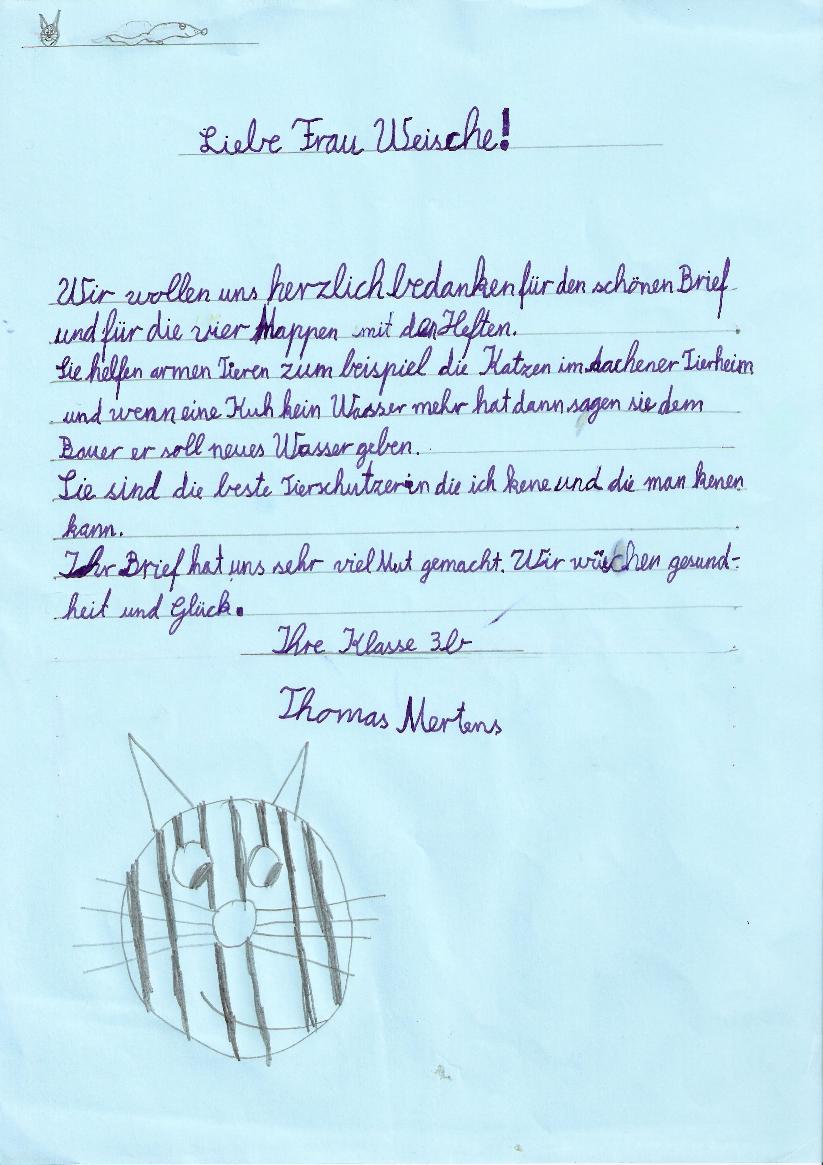 Liebe Frau Weische!
Wir wollen uns herzlich bedanken für den schönen Brief
und für die vier Mappen mit den Heften.
Sie helfen armen Tieren zum beispiel die Katzen im Aachener Tierheim
und wenn eine Kuh kein Wasser mehr hat dann sagen sie dem
Bauer er soll neues Wasser geben.
Sie sind die beste Tierschutzerin die ich kene und die man kenen
kann.
Ihr Brief hat uns sehr viel Mut gemacht. Wir wüschen gesund-
heit und Glück.
Ihre Klasse 3b
Thomas Mertens